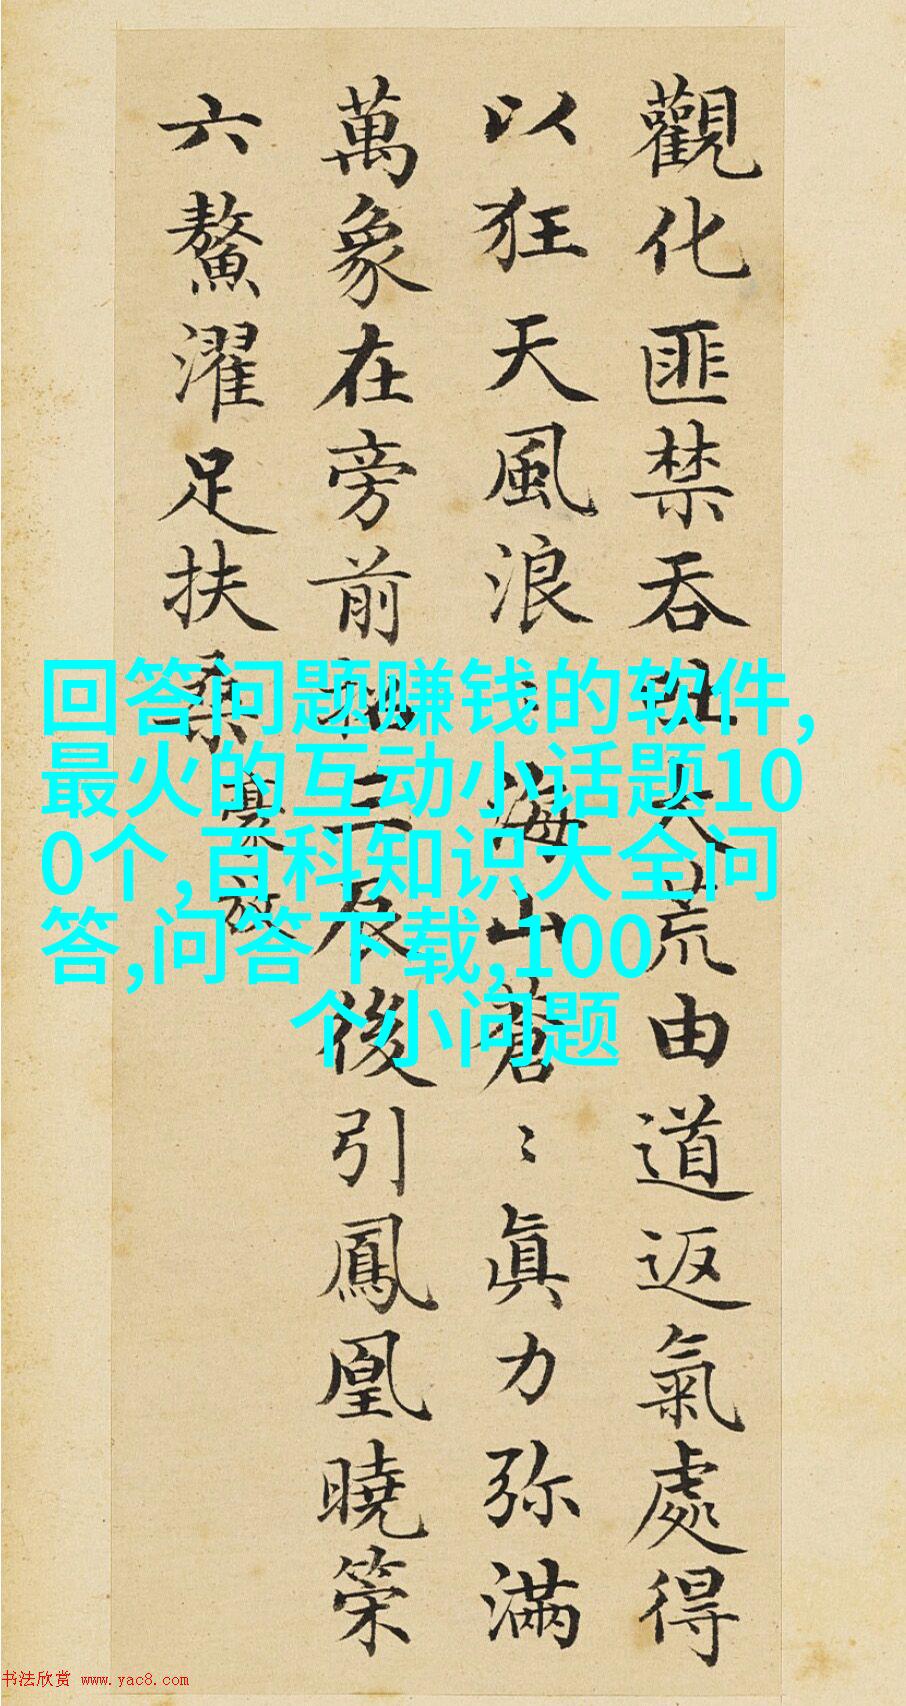 觀化匪禁吞吐大荒由道返氣處得
以狂天風浪〻海山蒼〻真力弥滿
萬象在旁前招三辰後引鳳凰曉策
六鰲濯足扶桑
豪放
回答问题赚钱的软件,
最火的互动小话题10
0个,百科知识大全问
答,问答下载,100
个小问题
书法欣赏 www.yac8.com